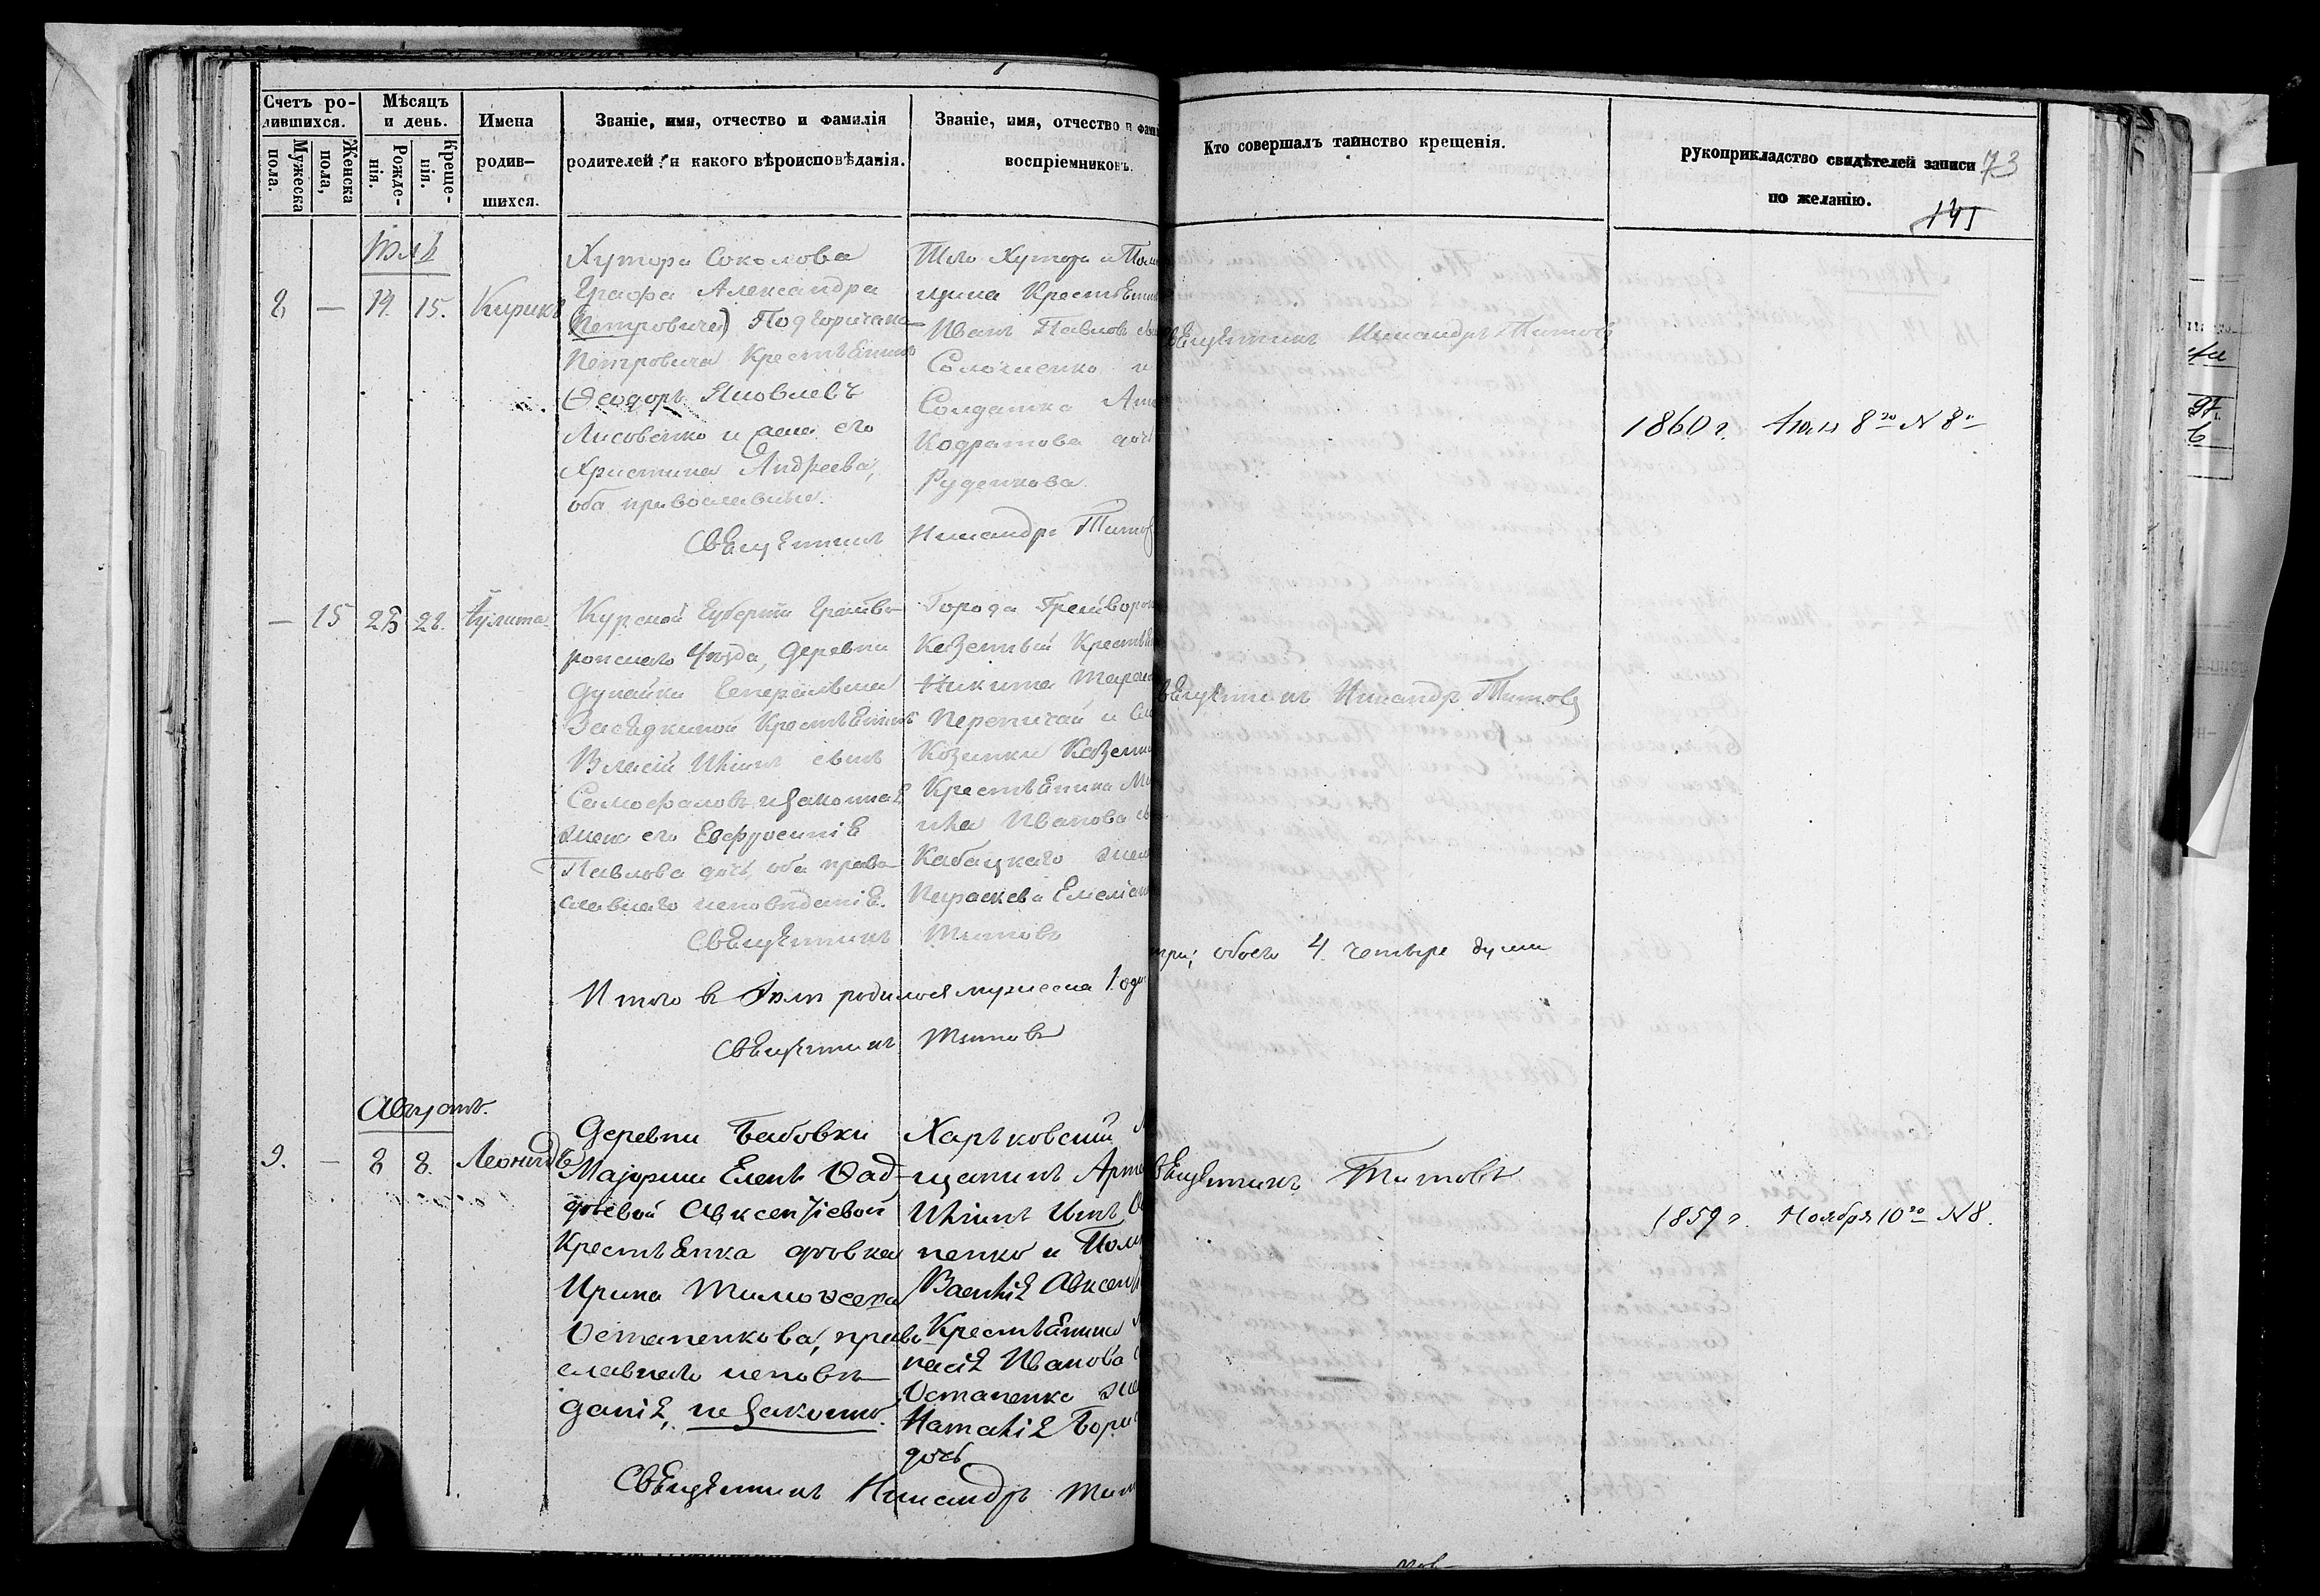 Счетъ ро-
дившихся.
Мужеска пола.
Женска пола,
Мѣсяцъ и день.
Рожденія.
Крещенія.
Имена
родив-
шихся.
Званіе, имя, отчество и фамилія
родителей и какого вѣроисповѣданія.
Званіе, имя, отчество и фами
воспріемниковъ.
Кто совершалъ таинство крещенія.
рукоприкладство свидѣтелей записи
по желанію.
73
141
8 — 14. 15. Кирикъ
Хутора Соколова
Графа Александра
(Петровича) Подгоричани
Петровича Крестьянинъ
Ѳеодоръ Яковлевъ
Лисовенко и жена его
Христина Андреева,
оба православные.
Того Хутора и
щика Крестьянинъ
Иванъ Павловъ
Солошенко и
Солдатка
Кодратова доч
Руденкова
Священникъ Никандръ Титовъ
Священникъ Никандръ Титовъ
1860 г. Іюля 8го N 8й
— 15 28. Іулита
Курской Губерніи Грайво-
ронскаго Уѣзда, Деревни
Дунайки Генеральши
Засядкиной Крестьянинъ
Власій Ильинъ сынъ
Самофаловъ и законная
жена его Евфросинія
Павлова дочь, оба право-
славнаго исповѣданія.
Города Грайворон
Казенный Крестья
Никита Тарас
Перепичай и
Козинки Казенна
Крестьянина
Иванова
Кабацкаго жен
Параскева Емельян
Священникъ Титовъ
вященникъ Никандръ Титовъ
Итого въ Іюлѣ родилося мужеска 1. оди
три; обоего 4. четыре души
Священникъ Титовъ
Августъ.
9. — 8 8. Леонидъ
Деревни Бабовки
Маіорши Елены Ѳад-
дѣевой Авксентіевой
Крестьянка дѣвка
Ирина Тимоѳеева
Остапенкова, право
славнаго исповѣ-
данія, незаконно.
Харьковскій
щанинъ Арте
Ильинъ сынъ
ненко и
Василія Авксен
Крестьянина
насія Иванова
Остапенко же
Наталія Бори
дочь
Священникъ Никандръ Тит
вященникъ Титовъ
1859 г. Ноября 10го N 8.